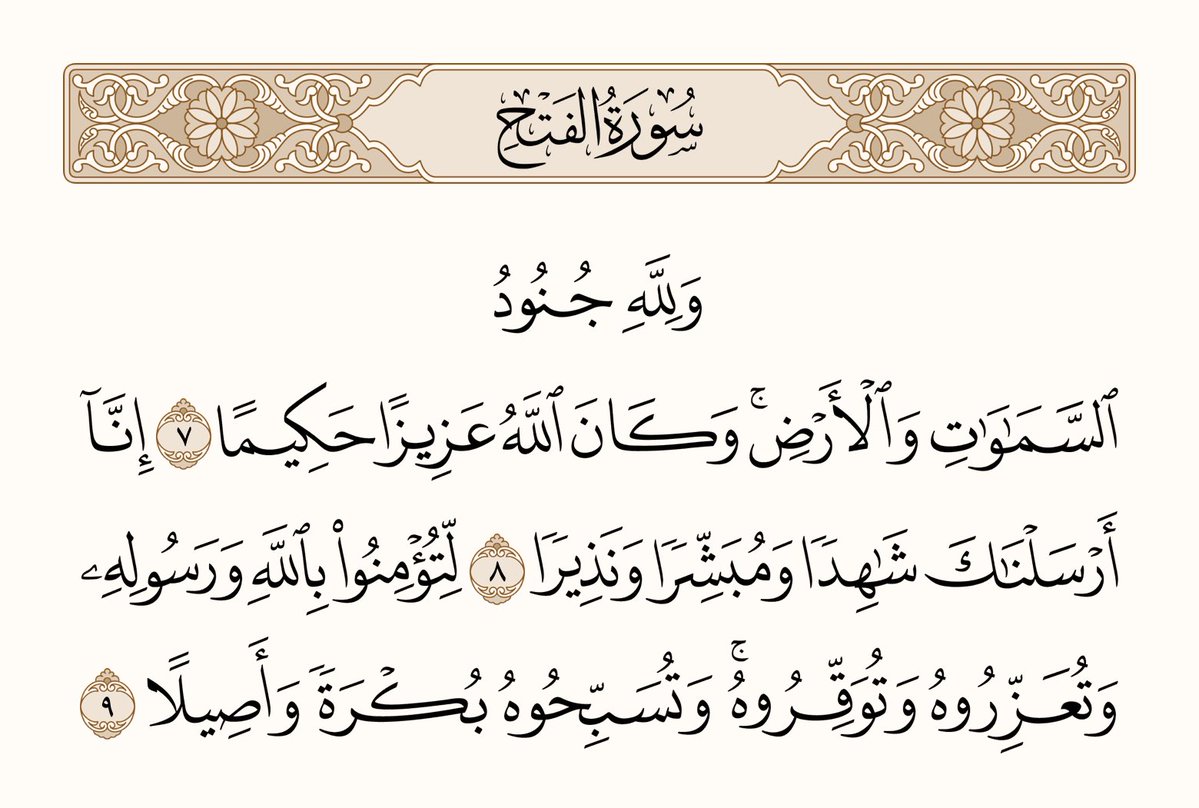 سُورَةُ الْفَتْحِ
وَلِلَّهِ جُنُودُ
ٱلسَّمَٰوَٰتِ وَٱلْأَرْضِۚ وَكَانَ ٱللَّهُ عَزِيزًا حَكِيمًا ٧ إِنَّآ
أَرْسَلْنَٰكَ شَٰهِدًا وَمُبَشِّرًا وَنَذِيرًا ٨ لِّتُؤْمِنُوا۟ بِٱللَّهِ وَرَسُولِهِۦ
وَتُعَزِّرُوهُ وَتُوَقِّرُوهُۚ وَتُسَبِّحُوهُ بُكْرَةً وَأَصِيلًا ٩